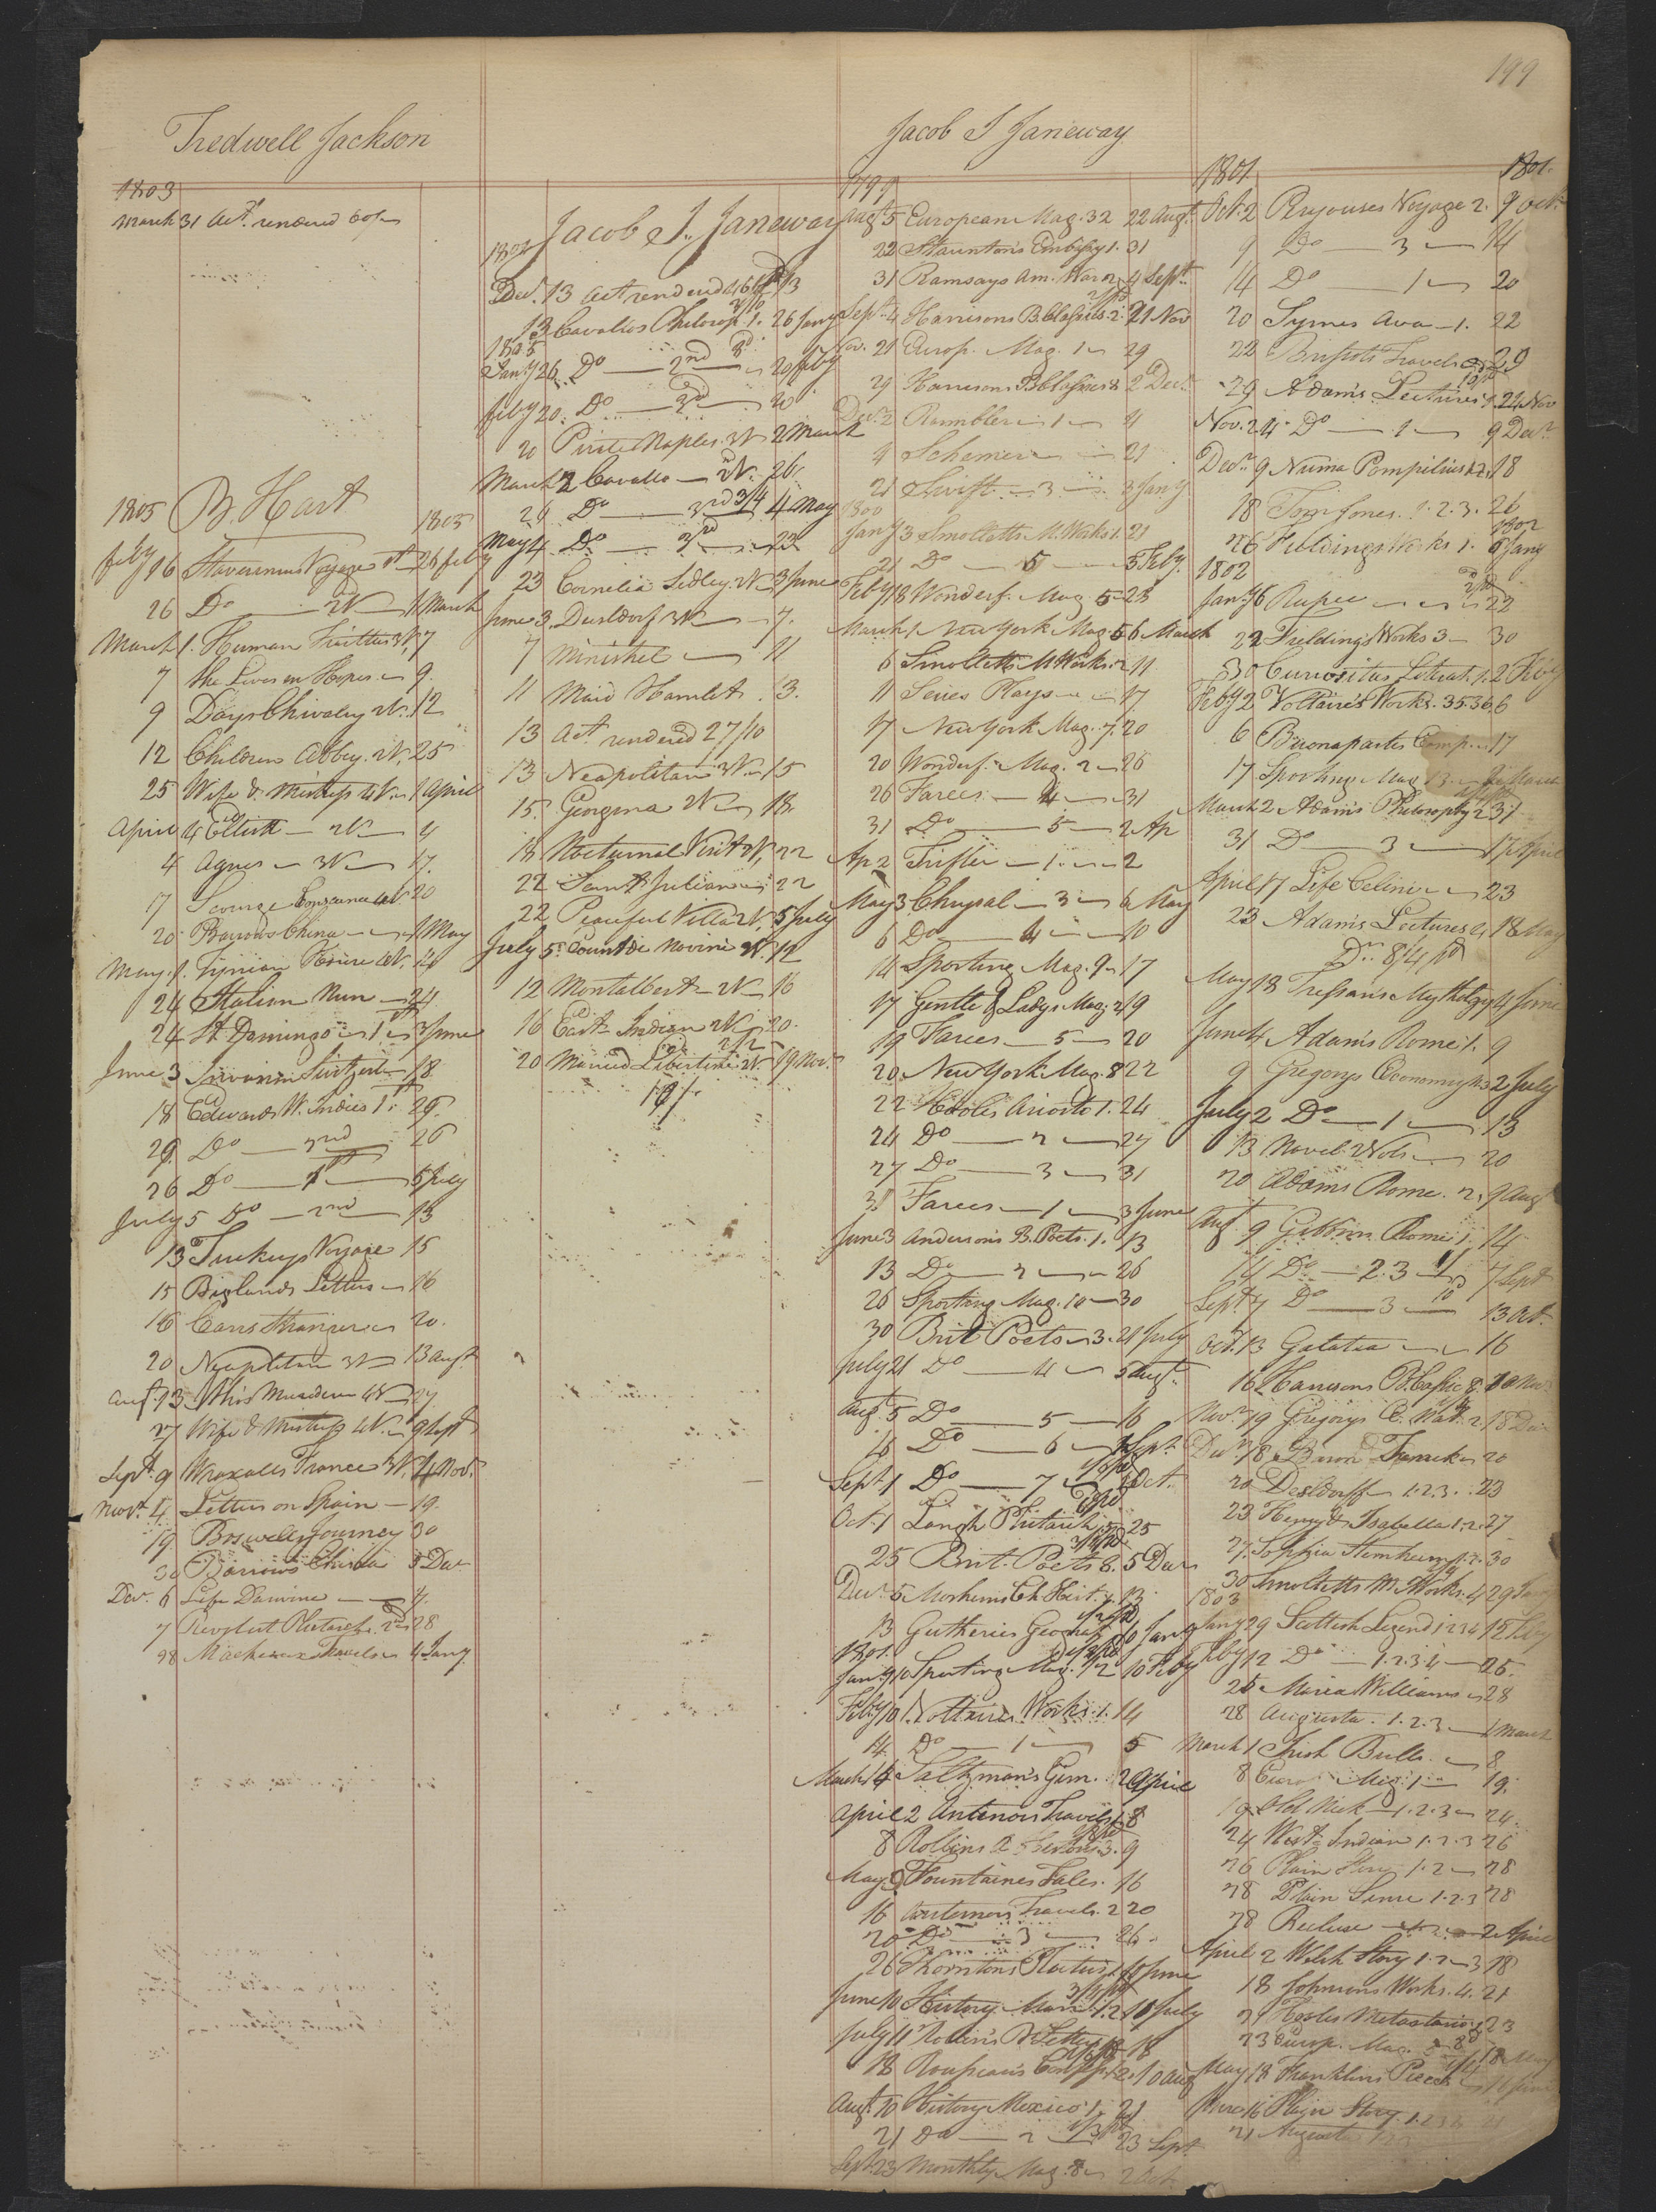 199
Tredwell Jackson
1803
March 31 Acct. rendered
B. Hart
1805 1805
feby 16 Stavorinus Voyage 1st 26 feby
26 Do 2V 1 March
March 1. Human Frailties 3V. 7
7 the Lover in Hopes 9.
9 Days Chivalry 2V. 12
12 Children Abbey. 2V. 25
25 Wife & Mistress 4V 1 April
April 4 2V 4
4 Agnes 3V 17.
17 Scourge Conscience 4V 20
20 Barrows China 1 May
May 1. 4V. 24
24 Italian Nun 24
24 St Domingo 1st 3 June
June 3 Switzerl 18
18 Edwards W. Indies 1st 29.
29. Do 2nd 26
26 Do 1st 5 July
July 5 Do 2nd 13
13 Tuckeys Voyage 15
15 Biglands Letters 16
16 Carrs Stranger 20.
20 Neapolitan 3V 13 augt
Augt. 13 Murderer 4V 27
27 Wife & Mistress 4V. 9 Sept
Sept. 9 Wraxalls France 3V. 4 Nov.
Novr. 4. Letters on Spain 19.
19. Boswells Journey 30
30 Barrows China 5 Der
Der. 6 Life Darwine 7.
7 Plutarch. 2d 28
28 Travels 4 Jany
Jacob J. Janeway
1804
Decr. 13 Act rendered 13
13 Cavallos Philosop 1. 26 Jany
1805
Jany 26 Do 2nd 20 feby
feby 20. Do 2d 20
20 Pirate Naples. 3V 2 March
March 2 Cavallo 2V. 26.
26 Do 3rd 3/4 4 May
May 4. Do 3rd 23
23 Cornelia Sedley. 2V. 3 June
June 3. Dusldorf 3V 7.
7 Minstrel 11
11 Maid Hamlet 13.
13 Act. rendered 27/10
13 Neapolitan 3V. 15
15. Georgena 2V 18.
18 Nocturnal Visit 2V. 22
22 Saint Julian 22
22 Peaceful Villa 2V. 5 July
July 5. Count de Novini 2V. 12
12 Montalbert 2V 16
16 East Indian 2V 20.
20 Married Libertine 2V. 19 Nov.
Jacob J Janeway
1799
Augt 5 European Mag. 32 22 Augt.
22 Stauntons Embassy 1. 31
31 Ramsays Am. War 2 4 Sept.
Sept. 4 Harrisons B. Classicks. 2. 21 Nov
Nov. 21 Europ. Mag. 1 29
29 Harrisons B Classicks 2 Decr.
Decr. 2 Rambler 1 4
4 Schemer 21
21 Swift 3 3 Jany
1800
Jany 3 Smolletts M. Works 1. 21
21 Do 5 5 Feby.
Feby 18 Wonderf. Mag. 5 23
March 1. New York Mag. 5 6 March
6 Smolletts M Works. 2 11.
11 Series Plays 17
17 New York Mag. 7. 20
20 Wonderf. Mag. 2 26
26 Farces 4 31
31 Do 5 2 Ap
Ap 2 Trifler 1. 2
May 3 Chrysal 3 6 May
6 Do 4 10
14 Sporting Mag. 9 17
17 Gentle & Ladys Mag. 2 19
19 Farces 5 20
20. New York Mag. 8 22
22 Hooles Ariosto 1. 24
24 Do 2 27
27 Do 3 31
31 Farces 1 3 June
June 3 Andersons B. Poets. 1. 13
13 Do 2 26
26 Sporting Mag. 10 30
30 Brit Poets 3. 21 July
July 21 Do 4 5 Augt.
Augt. 5 Do 5 16
16 Do 6 1 Sept.
Sept. 1 Do 7 1 Oct.
Oct. 1 Langh Plutarch 5 25
25 Brit. Poets 6. 5 Decr
Decr. 5 Mosheims Ch Hist. 13
13 Gutheries Geograf 10 Jany
1801.
Jany 10 Sporting Mag. 10 Feby
Feby 10 Voltaires Works. 1. 14
14 Do 1 5
March 14 Saltzman's Gim. 2 April
April 2 Antenors Travels 1. 8
8 Rollins 3. 9
May 9 Fountaines Tales. 16
16 Antenors Travels. 2 20
20 Do 3 26
26 Thorntons Plautus 1 10 June
June 10 History 1. 2 10 July
July 11 Rollins 18
18 Rousseau's Confess. 2. 10 Aug
Augt. 10 History Mexico 1. 21
21 Do 2 23 Sept
Sept. 23 Monthly Mag. 8 2 Oct
1801 1801.
Oct. 2 Peyouses Voyage 2. 9 Oct.
9 Do 3 14
14 Do 1 20
20 Symes Ava 1. 22
22 Brissots Travels 29
29 Adams Lectures 1. 24 Nov
Nov. 24 Do 1 9 Decr.
Decr. 9 Numa Pompilius 1.2. 18
18 Tom Jones. 1. 2. 3. 26
1802
26 Fieldings Works 1. 6 Jany
1802
Jany 6 Rupee 22
22 Fieldings Works 3 30
30 Curiosities Literat. 1. 2 Feby
Feby 2 Voltaires Works. 35. 36. 6
6 Buonapartes Camp. 17
17 Sporting Mag. 13. 2 March
March 2 Adams Philosophy 2 31
31 Do 3 17 April
April 17 Life Celini 23
23 Adams Lectures 4 18 May
Dr. 8/4 pd
May 18 Tressans Mythology 4 June
June 4 Adams Rome 1. 9
9 Gregorys Economy 3 2 July
July 2 Do 1 13
13 Novel 2 Vols 20
20 Adams Rome. 2. 9 Aug
Augt 9 Gibbon Rome 1. 14
14 Do 2. 3 7 Sept
Sept 7 Do 3 13 Oct.
Oct. 13 Galatea 16
16 Harrisons B. Classic 8. 10 Nov.
Novr. 19 Gregorys 2. 18 Decr
Decr. 18 Baron Trenck 20
20 Desldorff 1. 2. 3. 23
23 Henry & Isabella 1. 2. 27
27. Sophia 1. 2. 30
30 Smolletts M Works. 4 29 Jany
1803
Jany 29 Scottish Legend 1 2 3 4 12 Feby
Feby 12 Do 1. 2. 3 4 25.
25 Maria Williams 28
28 Augusta. 1. 2. 3 1 March
March 1 Irish Bulls. 8
8 Euro Mag. 1 19.
19 Old Nick 1. 2. 3 24.
24 West Indian 1. 2. 3 26
26 Plain Story 1. 2 28
28 Plain Sense 1. 2. 3 28
28 Recluse 2 April
April 2 Welsh Story 1. 2 3 18
18 Johnsons Works. 4. 21
21 Hooles Metastasio 23
23 Europ. Mag. 18 May
May 18 Franklins Pieces 11 June
June 16 Plain Story 1. 2
21 Augusta